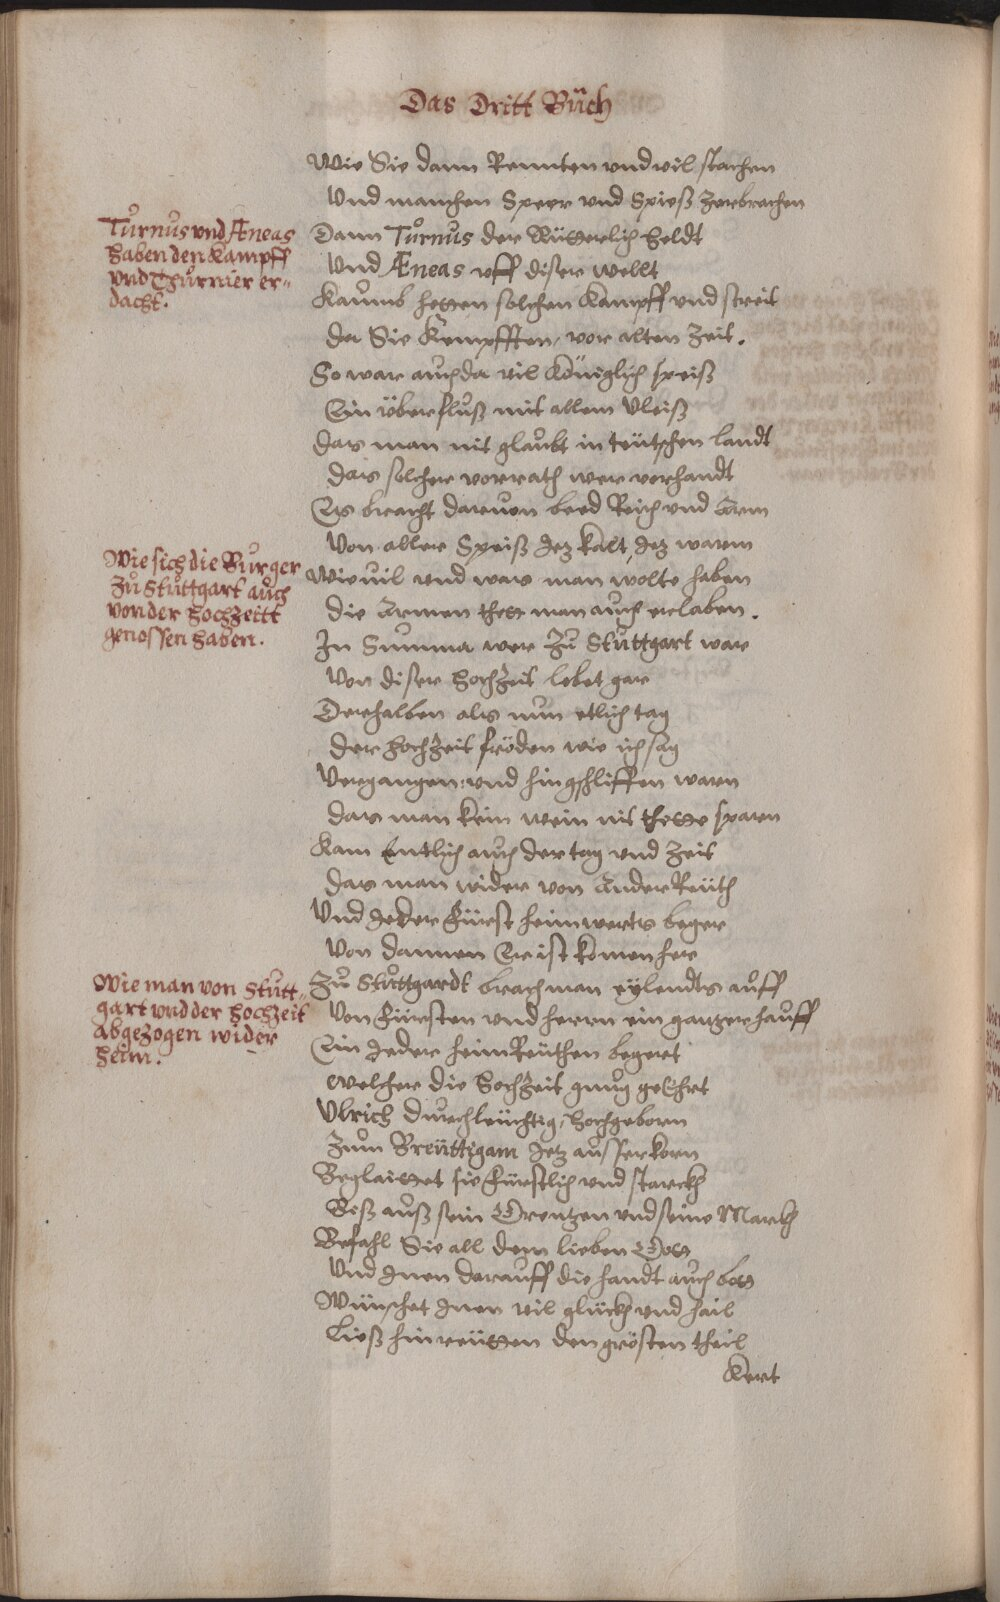 Das Dritt Bůch
Wie Sie dann Rennten vnd vil stachen
Vnd manchen Speer vnd Spieß zerbrachen
Turnus vnd Æneas
haben den Kampff
vnd Thurnier er-
dacht.
Dann Turnus der Ritterlich Heldt
Vnd Æneas vff diser wellt
Kaumb hetten solchen Kampff vnd streit
da Sie Kempfften, vor alten Zeit.
So war auch da vil Königlich speiß
Ein überfluß mit allem Vleiß
das man nit glaubt in teütschen landt
das solcher vorrath wer verhandt
Es bracht daruon beed Reich vnd Arm
Von aller Speiß Jez kalt, Jez warm
Wie sich die Burger
zů Stuttgart auch
von der Hochzeitt
genossen haben.
Wieuil vnd was man wolte haben
die Armen thett man auch erlaben.
In Summa wer Zů Stuttgart war
Von diser Hochzeit lebet gar
Derhalben als nun etlich tag
der Hochzeit fröden wie ich sag
Vergangen vnd hingschliffen warn
das man kein wein nit thette sparn
Kam Entlich auch der tag vnd Zeit
das man wider von Ander Reüth
Vnd Jeder Fürst heimwerts beger
Von dannen Er ist komen her
Wie man von Stutt-
gart vnd der Hochzeit
abgezogen wider
heim.
Zů Stuttgardt brach man eylendts auff
Von Fürsten vnd herrn ein gantzer hauff
Ein Jeder heim Reüthen begert
welcher die Hochzeit gnug geEhrt
Vlrich durchleüchtig, Hochgeborn
Zum Breüttigam Jetz ausserkorn
Beglaittet sie Fürstlich vnd starckh
Biß auß sein Grentzen vnd seine Markh
Befahl Sie all dem lieben Gott
Vnd Jnen darauff die handt auch bott
Wünschet Jnen vil glückh vnd hail
Ließ hinreütten den grösten theil
Kert